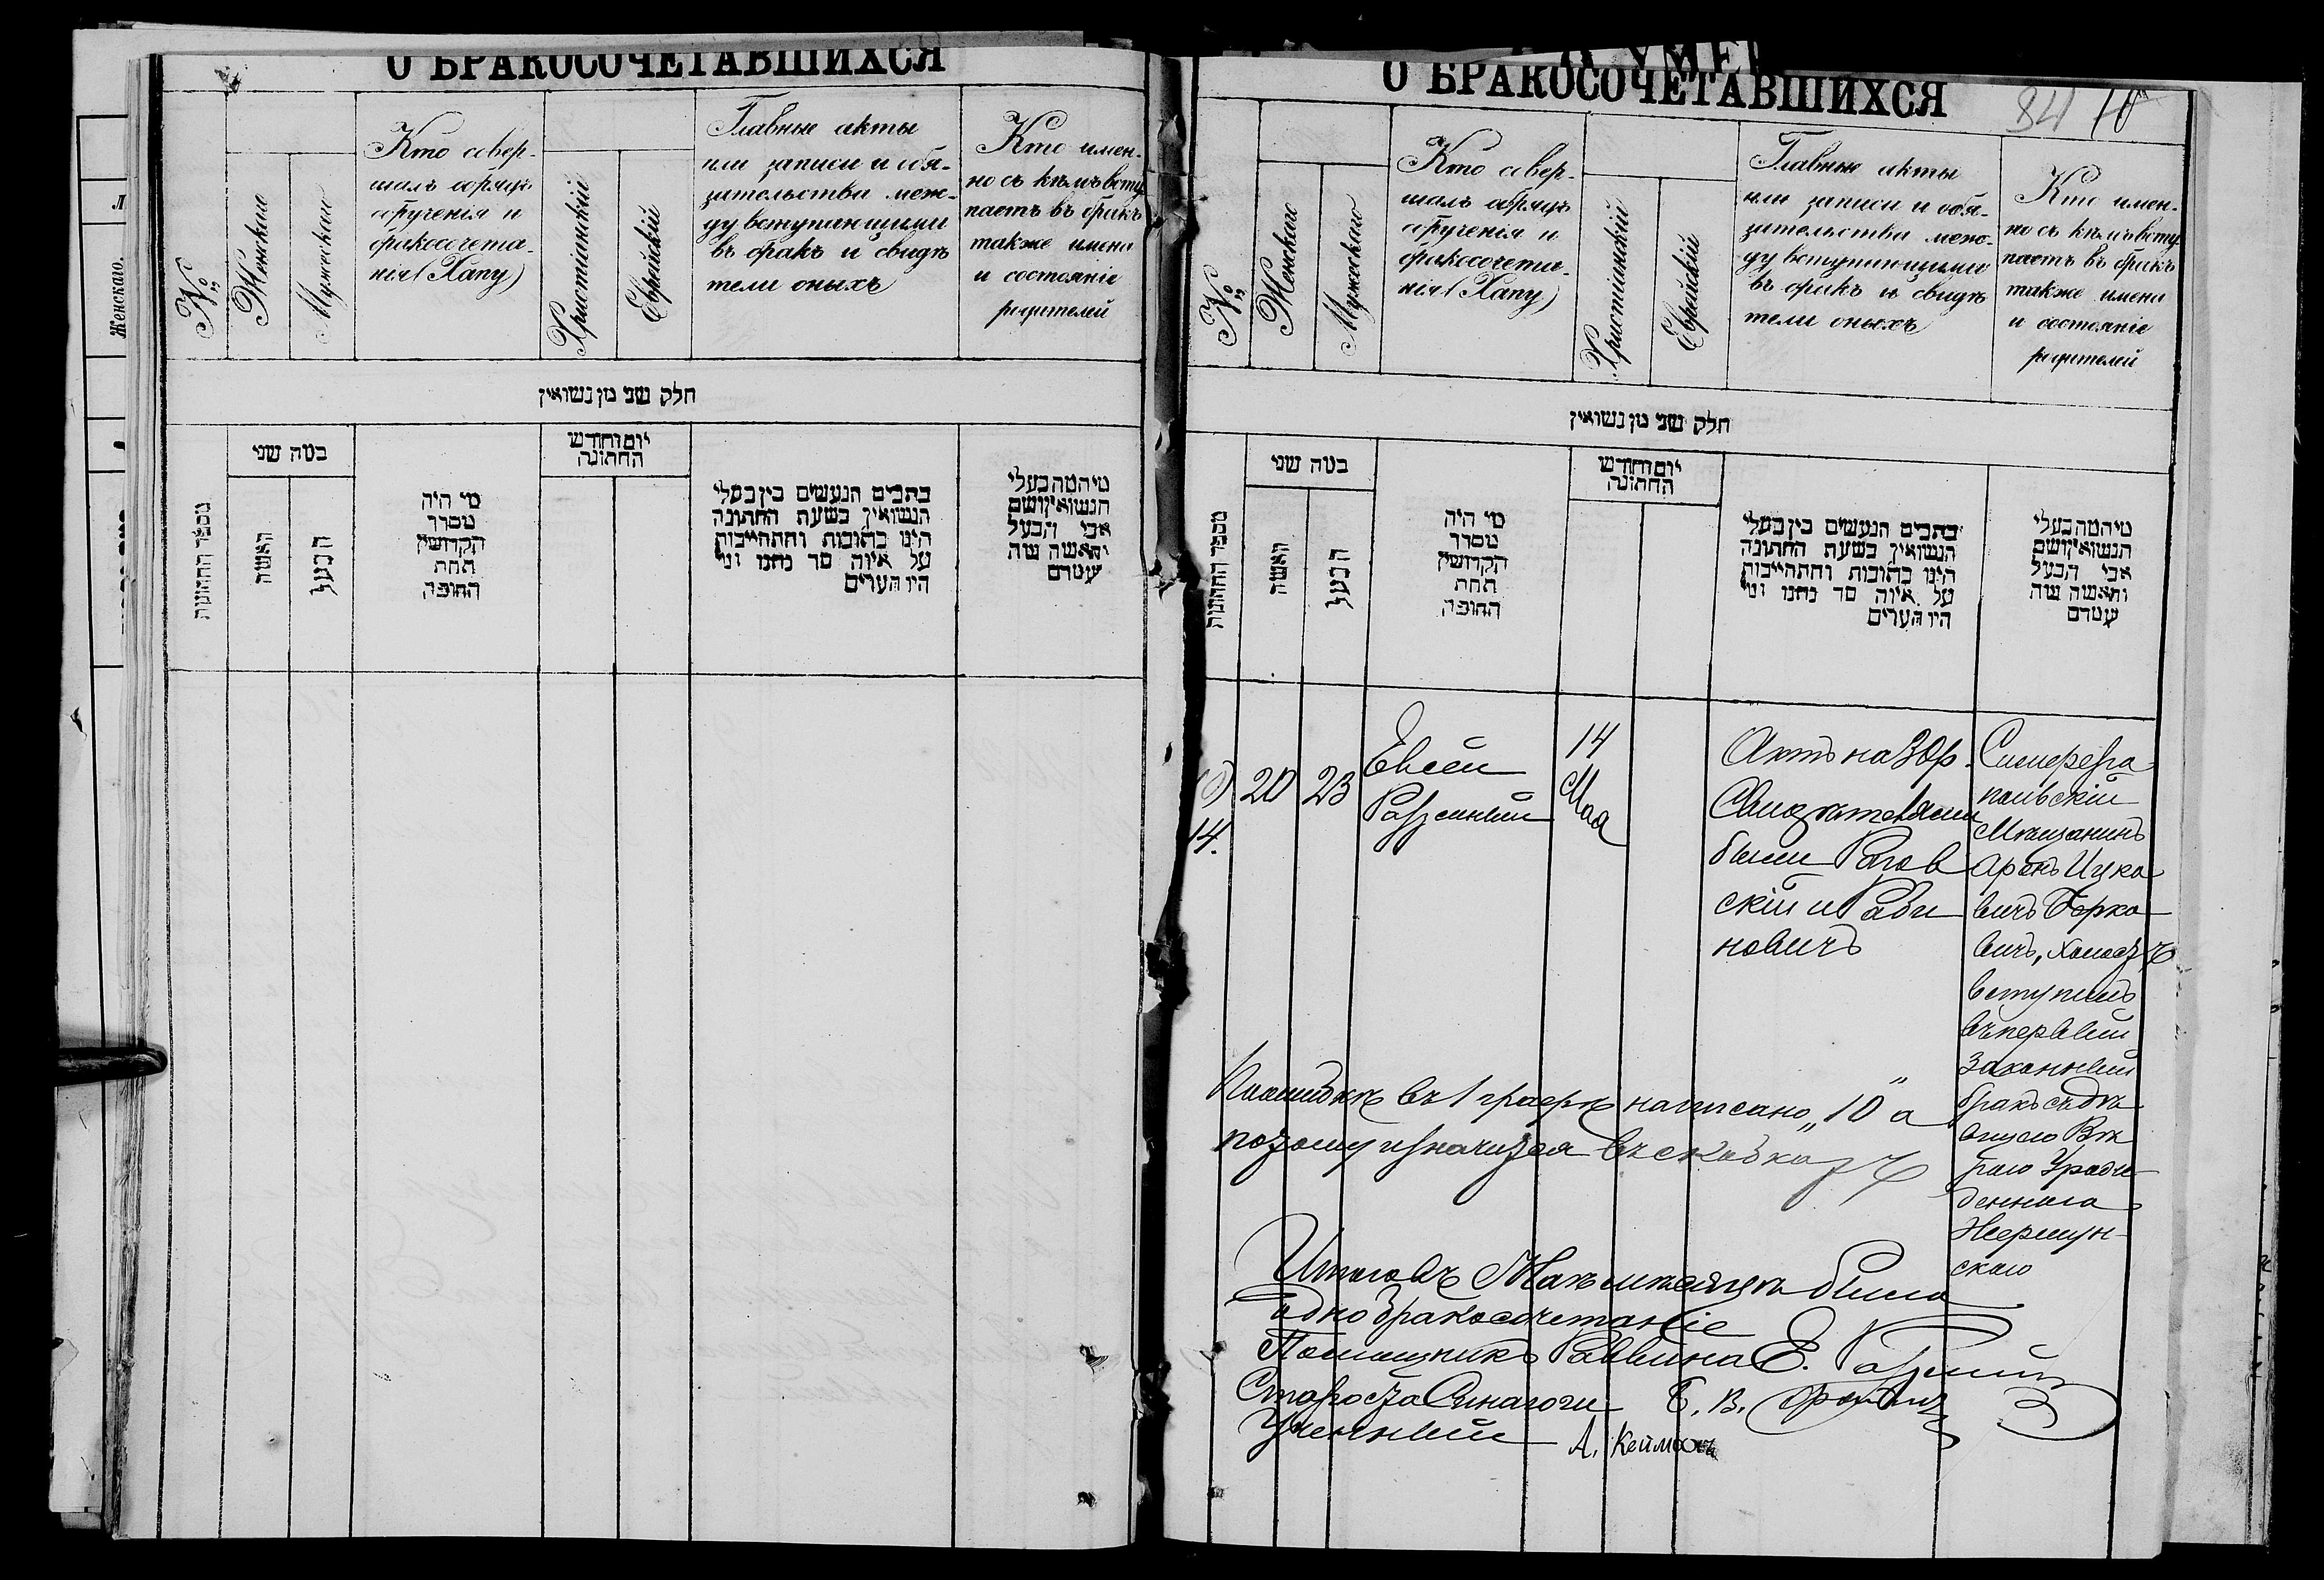 О БРАКОСОЧЕТАВШИХСЯ
№
Женскаго
Мужескаго
Кто совер-
шалъ обрядъ
обрученія и
бракосочета-
нія (Хапу)
Христіанскій
Еврейскій
Главные акты
или записи и обя-
зательства меж-
ду вступающими
въ бракъ и свидѣ
тели оныхъ
Кто имен-
но съ кѣмъ всту
паетъ въ бракъ
также имена
и состояніе
родителей
חלק שני מן נשואין
מספר החתונות
כמה שני
האשה
הבעל
מי היה
מסדר
הקדושין
תחת
החופה
יום וחודש
החתונה
כתבים הנעשים בין בעלי
הנשואין בשעת החתונה
הינו כתובות והתחייבות
על איזה סך נתנו ומי
היו העדים
מי המה בעלי
הנשואין ושם
אבי הבעל
והאשה ומה
מעמדם
Женскаго.
О БРАКОСОЧЕТАВШИХСЯ
84 10
№
Женскаго
Мужескаго
Кто совер-
шалъ обрядъ
обрученія и
бракосочета-
нія (Хапу)
Христіанскій
Еврейскій
Главные акты
или записи и обя-
зательства меж-
ду вступающими
въ бракъ и свидѣ
тели оныхъ
Кто имен-
но съ кѣмъ всту
паетъ въ бракъ
также имена
и состояніе
родителей
חלק שני מן נשואין
מספר החתונות
כמה שני
האשה
הבעל
מי היה
מסדר
הקדושין
תחת
החופה
יום וחודש
החתונה
כתבים הנעשים בין בעלי
הנשואין בשעת החתונה
הינו כתובות והתחייבות
על איזה סך נתנו ומי
היו העדים
מי המה בעלי
הנשואין ושם
אבי הבעל
והאשה ומה
מעמדם
14.
20
23
Евсей
14
Мая
Актъ на 30 р.
Свидѣтелями
были Рогов
скій и Раби
новичъ
Симферо
польскій
Мѣщанинъ
Аронъ Ицко
вичъ Берко
вичъ, холост
вступилъ
въ первый
законный
бракъ съ дѣ
вицею
Урожде
денною
Жермун-
скою
По ошибкѣ въ 1 графѣ написано „10" а
потому значится въ скобкахъ
Итого въ Маѣ мѣсяцѣ было
одно бракосочетаніе
Помощникъ Раввина Е.
Староста Синагоги Б. В.
Ученный А. Кейльманъ